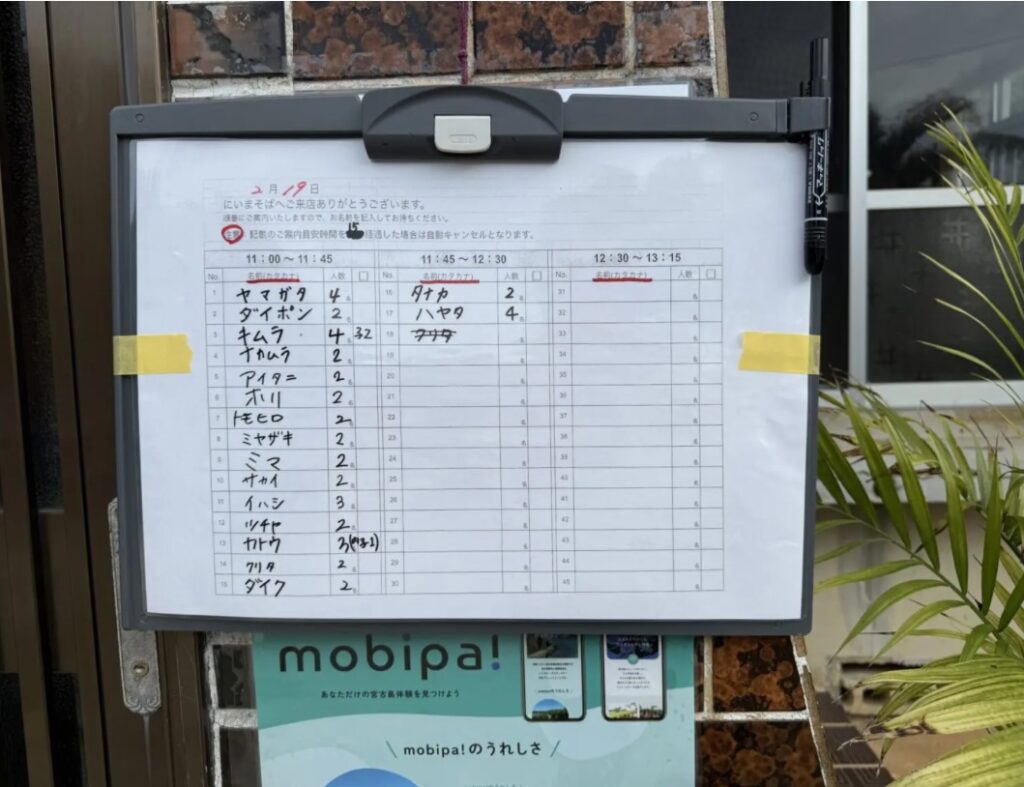 2月19日
にいまそばへご来店ありがとうございます。
順番にご案内いたしますので、お名前を記入してお待ちください。
注意 記載のご案内目安時間を15 経過した場合は自動キャンセルとなります。
11：00 ～ 11：45 11：45 ～ 12：30 12：30 ～ 13：15
No. 名前(カタカナ) 人数 No. 名前(カタカナ) 人数 No. 名前(カタカナ) 人数
1 ヤマガタ 4名 16 タナカ 2名 31 名
2 ダイポン 2名 17 ハヤタ 4名 32 名
3 キムラ 4名 18 クリタ 名 33 名
4 ナカムラ 2名 19 名 34 名
5 アイタニ 2名 20 名 35 名
6 2名 21 名 36 名
7 トモヒロ 2名 22 名 37 名
8 ミヤザキ 2名 23 名 38 名
9 ミマ 2名 24 名 39 名
10 サカイ 2名 25 名 40 名
11 イハシ 3名 26 名 41 名
12 ツチヤ 2名 27 名 42 名
13 カトウ 3 28 名 43 名
14 クリタ 2名 29 名 44 名
15 ダイク 2名 30 名 45 名
マッキー
mobipa!
あなただけの宮古島体験を見つけよう
mobipa!のうれしさ